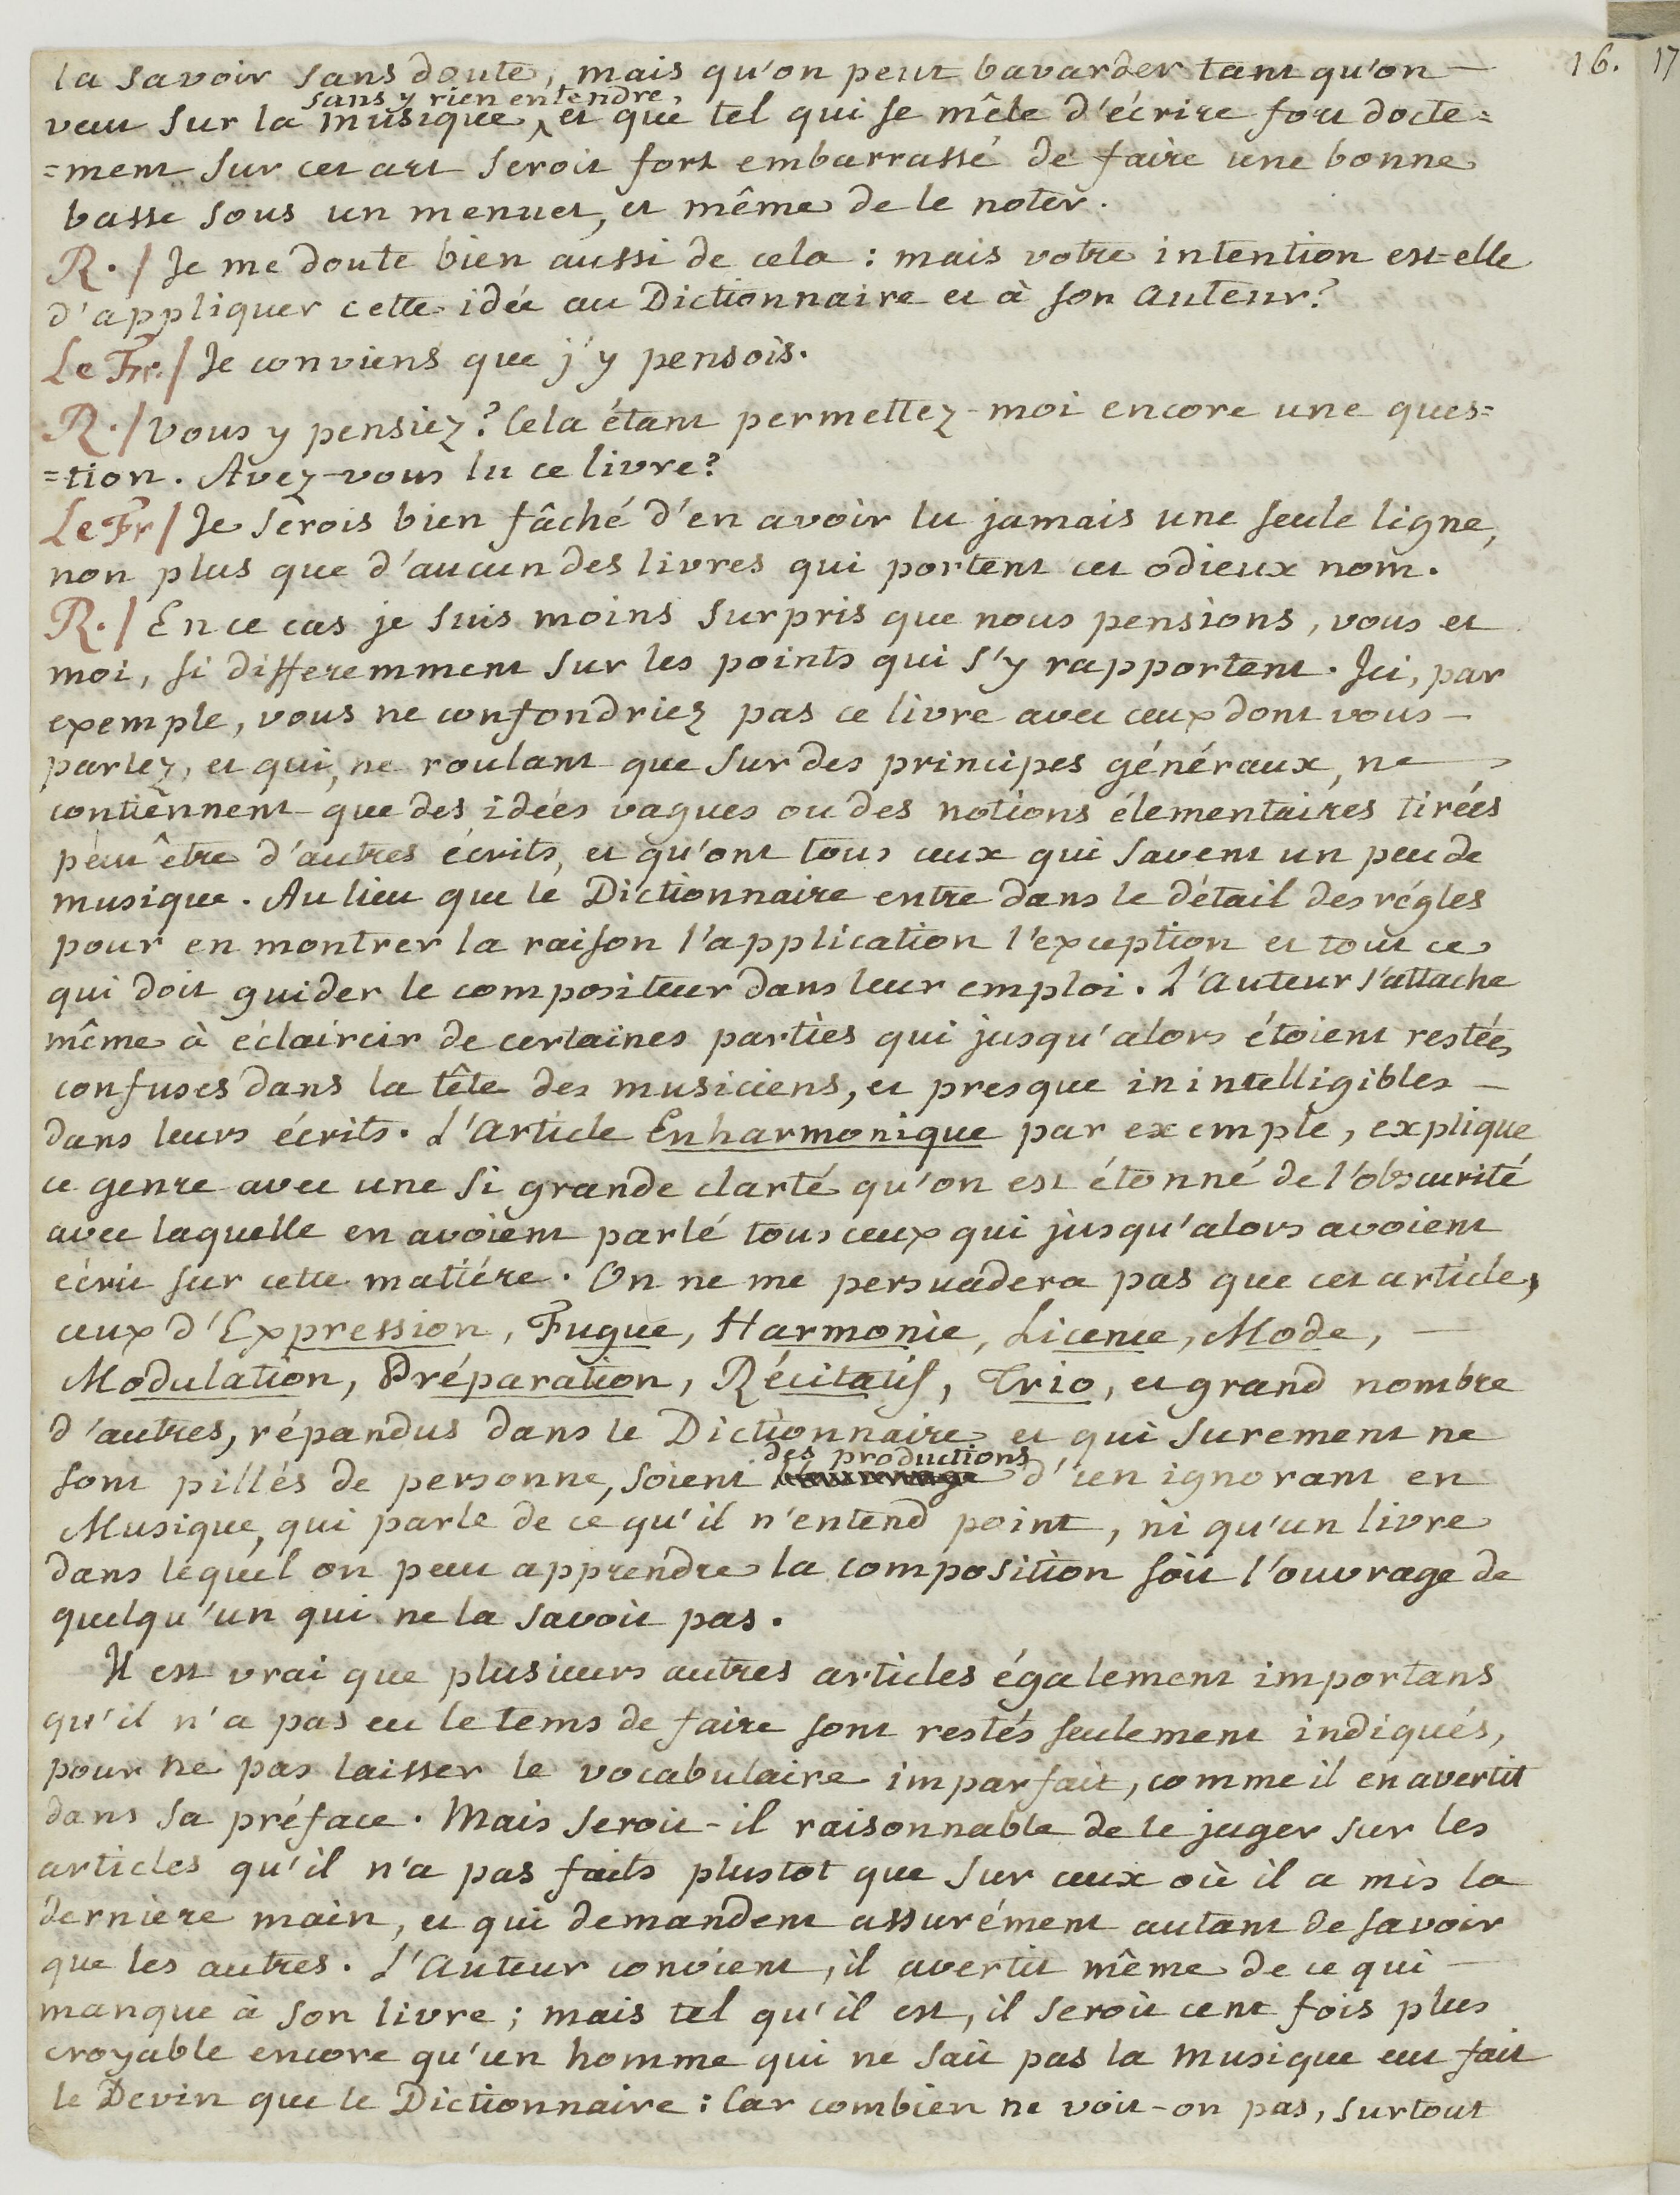 16. 17
la savoir sans doute, mais qu'on peut bavarder tant qu'on —
sans y rien entendre,
veut sur la musique, et que tel qui se mêle d'écrire fort docte=
=ment sur cet art seroit fort embarrassé de faire une bonne
basse sous un menuet, et même de le noter.
R./ Je me doute bien aussi de cela : mais votre intention est-elle
d'appliquer cette idée au Dictionnaire et à son Auteur?
Le Fr./ Je conviens que j'y pensois.
R./ Vous y pensiez? Cela étant permettez-moi encore une ques=
=tion. Avez-vous lu ce livre?
Le Fr/ Je serois bien fâché d'en avoir lu jamais une seule ligne,
non plus que d'aucun des livres qui portent cet odieux nom.
R./ En ce cas je suis moins surpris que nous pensions, vous et
moi, si differemment sur les points qui s'y rapportent. Ici, par
exemple, vous ne confondriez pas ce livre avec ceux dont vous —
parlez, et qui, ne roulant que sur des principes généraux, ne —
contiennent que des idées vagues ou des notions élementaires tirées
peut être d'autres écrits, et qu'ont tous ceux qui savent un peu de
musique. Au lieu que le Dictionnaire entre dans le détail des régles
pour en montrer la raison l'application l'exception et tout ce
qui doit guider le compositeur dans leur emploi. L'Auteur s'attache
même à éclaircir de certaines parties qui jusqu'alors étoient restées
confuses dans la tête des musiciens, et presque inintelligibles —
dans leurs écrits. L'Article Enharmonique par exemple, explique
ce genre avec une si grande clarté qu'on est étonné de l'obscurité
avec laquelle en avoient parlé tous ceux qui jusqu'alors avoient
écrit sur cette matiére. On ne me persuadera pas que cet article,
ceux d'Expression, Fugue, Harmonie, Licence, Mode, —
Modulation, Préparation, Récitatif, Trio, et grand nombre
d'autres, répandus dans le Dictionnaire et qui surement ne
des productions
sont pillés de personne, soient l'ouvrage d'un ignorant en
Musique, qui parle de ce qu'il n'entend point, ni qu'un livre
dans lequel on peut apprendre la composition soit l'ouvrage de
quelqu'un qui ne la savoit pas.
Il est vrai que plusieurs autres articles également importans
qu'il n'a pas eu le tems de faire sont restés seulement indiqués,
pour ne pas laisser le vocabulaire imparfait, comme il en avertit
dans sa préface. Mais seroit-il raisonnable de le juger sur les
articles qu'il n'a pas faits plustot que sur ceux où il a mis la
derniere main, et qui demandent assurément autant de savoir
que les autres. L'Auteur convient, il avertit même de ce qui —
manque à son livre ; mais tel qu'il est, il seroit cent fois plus
croyable encore qu'un homme qui ne sait pas la musique eut fait
le Devin que le Dictionnaire : Car combien ne voit-on pas, surtout